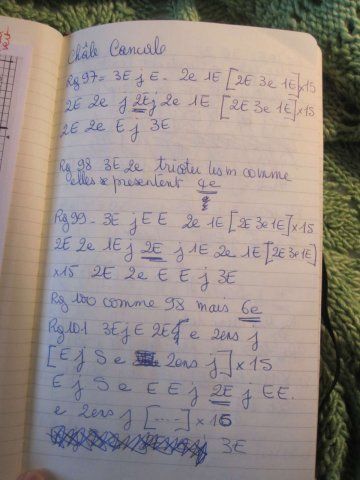 Châle
Rg 97 = 3E j E - 2e 1E [2E 3e 1E] x 15
2E 2e j 2E j 2e 1E [2E 3e 1E] x 15
2E 2e E j 3E
Rg 98 3E 2e tricoter les m comme
elles se présentent 4e
Rg 99 - 3E j E E 2e 1E [2E 3e 1E] x 15
2E 2e 1E j 2E j 1E 2e 1E [2E 3e 1E]
x 15 2E 2e E E j 3E
Rg 100 comme 98 mais 6e
Rg 101 3E j E 2E e 2ens j
[E j S e 2ens j] x 15
E j S e E E j 2E j E E.
e 2ens j [.....] x 16
3E